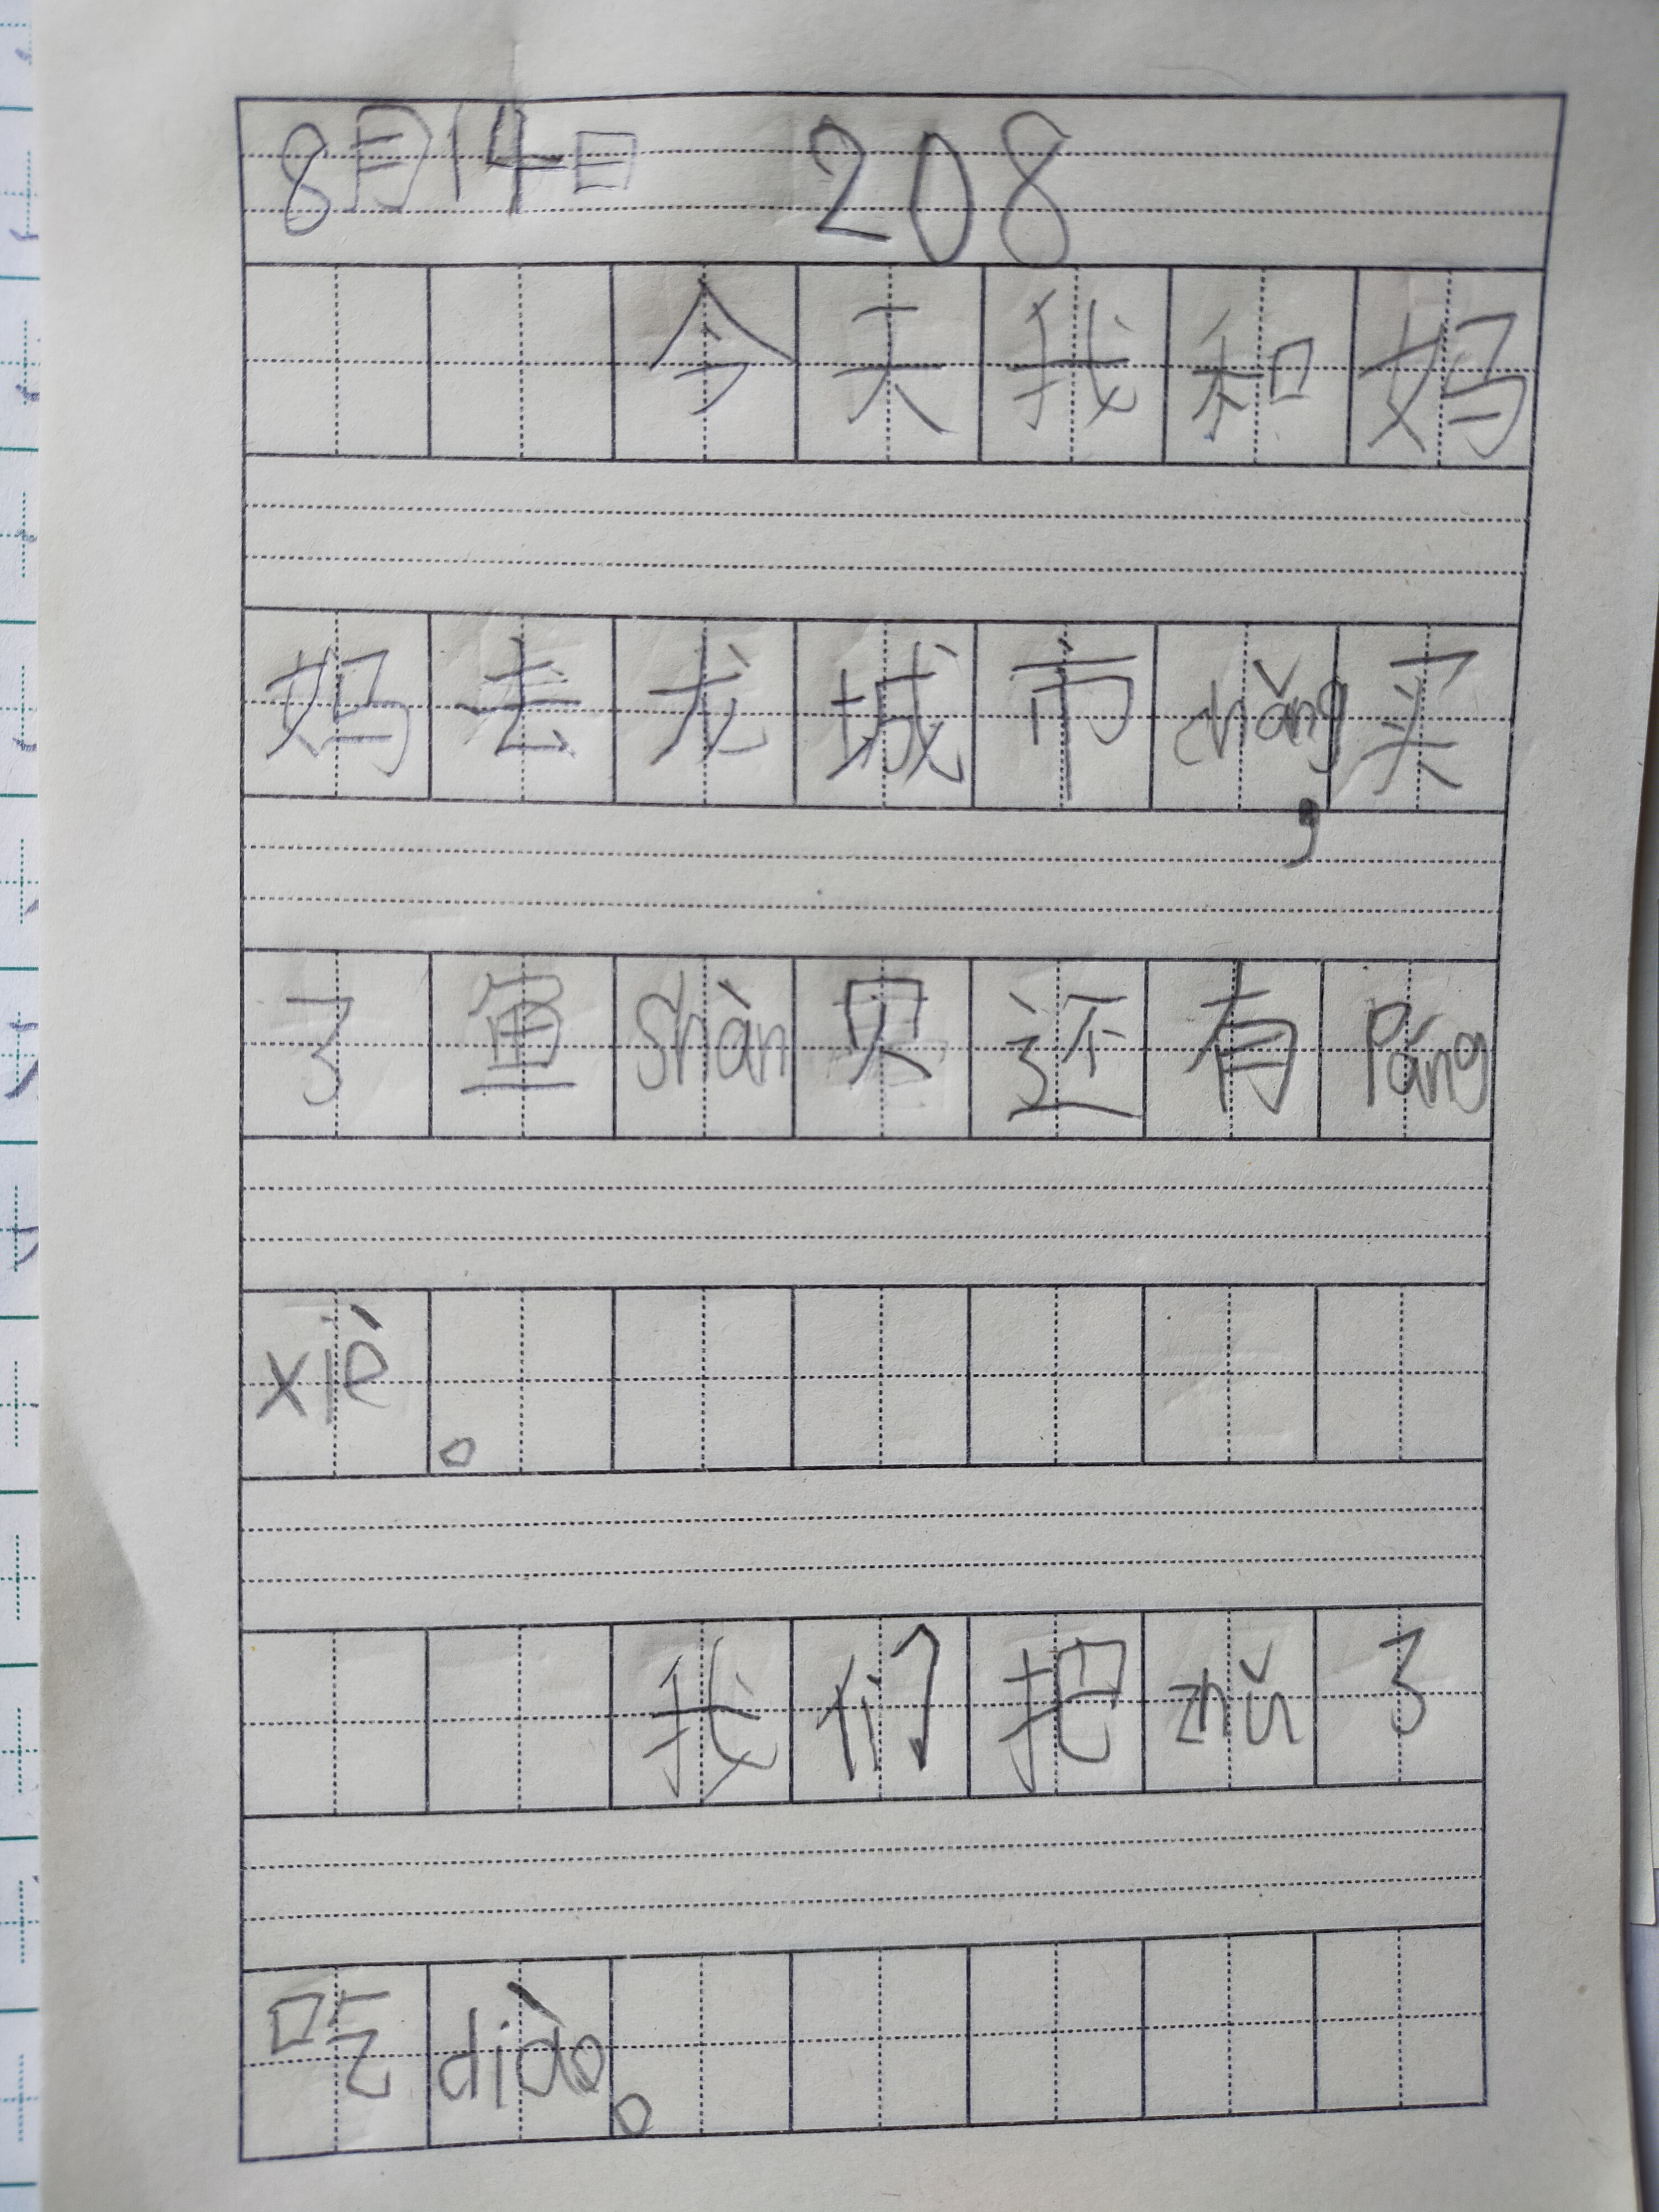 8月14日 208
今天我和妈
妈去龙城市chǎng,买
了鱼shàn贝还有Páng
xiè。
我们把zhǔ了
吃diào。